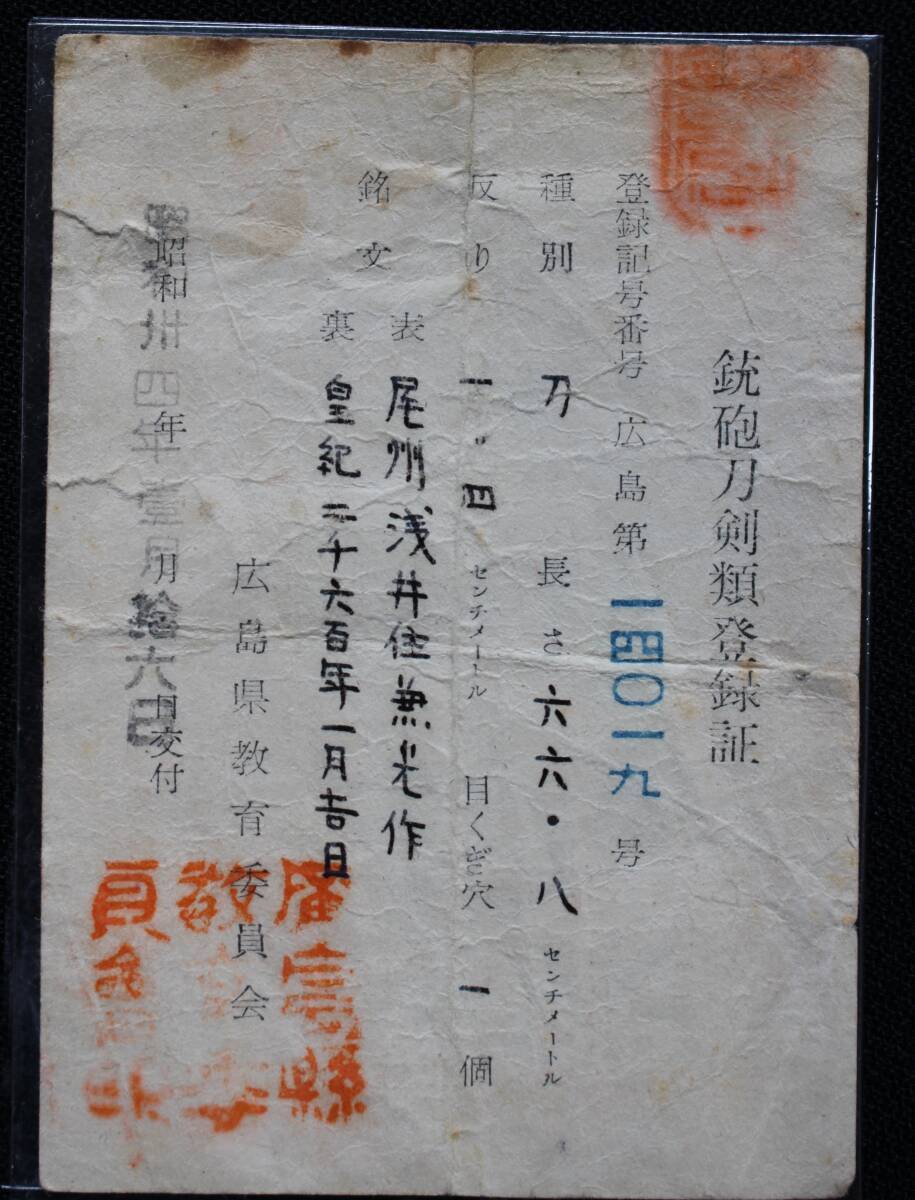 銃砲刀剣類登録証
登録記号番号 広島第 一四〇一九 号
種別 刀 長さ 六六・八 センチメートル
反り 一・四 センチメートル 目くぎ穴 一 個
銘文 表 尾州浅井住兼光作
裏 皇紀二千六百年一月吉日
広島県教育委員会
昭和 年 月 日交付
昭和卅四年壹月拾六日
廣島縣
教育委
員会